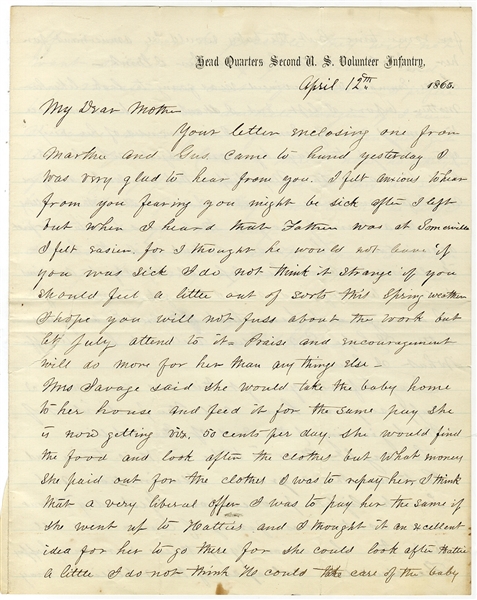 Head Quarters Second U. S. Volunteer Infantry,
April 12th. 1865.
My Dear Mother
Your letter enclosing one from
Martha and Gus. came to hand yesterday I
was very glad to hear from you. I felt anxious to hear
from you fearing you might be sick after I left
but when I heard that Father was at Somerville
I felt easier. for I thought he would not leave if
you was sick I do not think it strange if you
should feel a little out of sorts this Spring weather
I hope you will not fuss about the work but
let July attend to it. Praise and encouragement
will do more for her than any things else –
Mrs Savage said she would take the baby home
to her house and feed it for the same pay she
is now getting viz. 50 cents per day. she would find
the food and look after the clothes but what money
she paid out for the clothes I was to repay her. I think
that a very liberal offer I was to pay her the same if
she went up to Hatties and I thought it an excellent
idea for her to go there for she could look after Hattie
a little I do not think he could take care of the baby